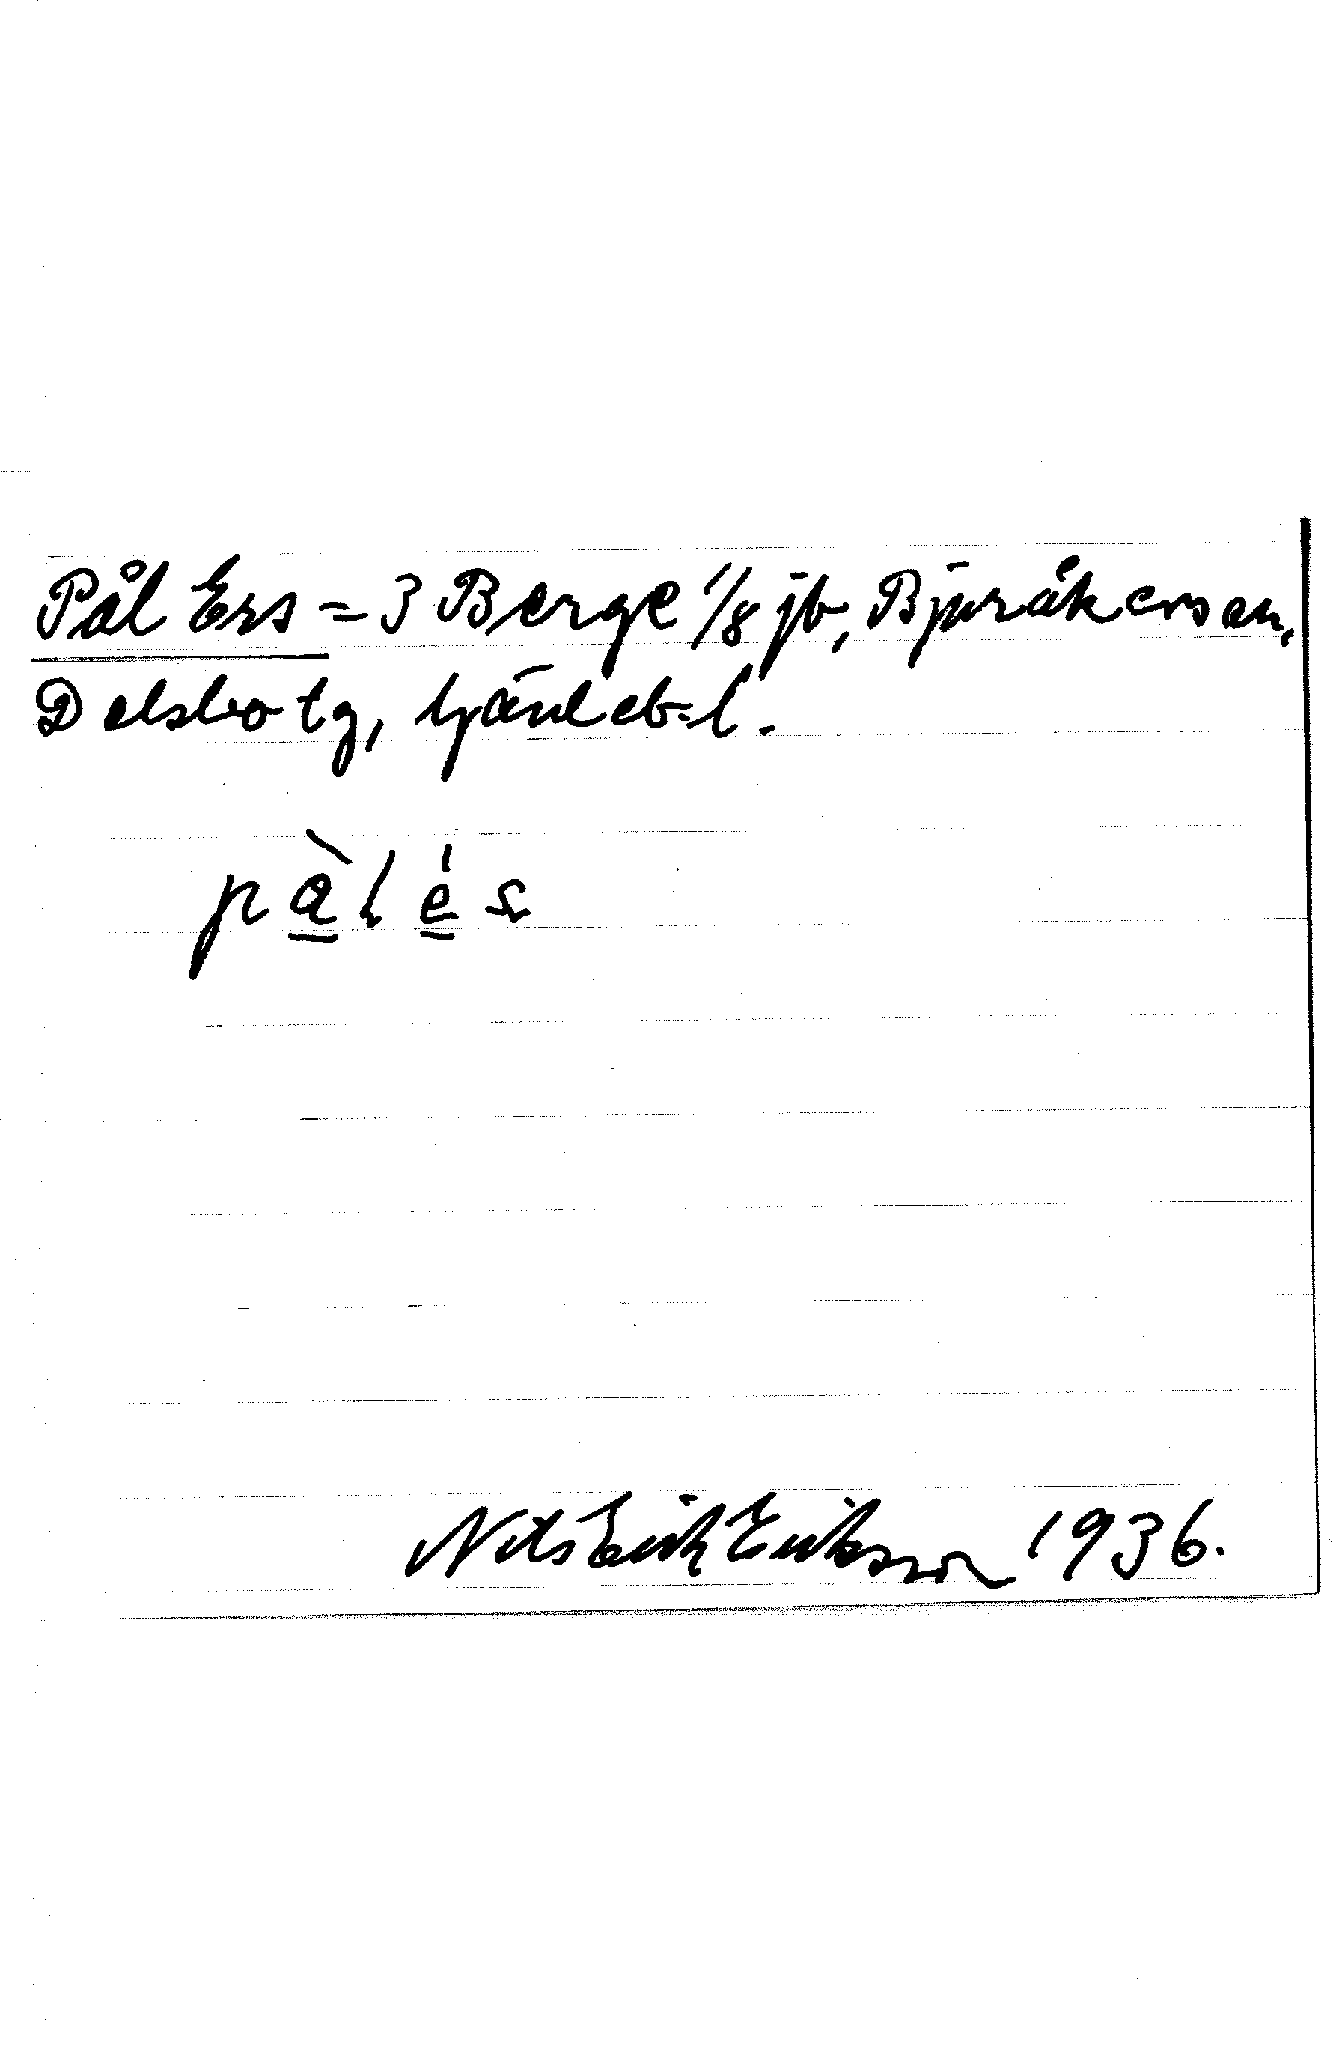 Pål Ers = 3 Berge 1/8 jb, Bjuråkers sn,
Delsbo tg, Gävleb. l.
pàlés
Nils Erik Eriksson 1936.